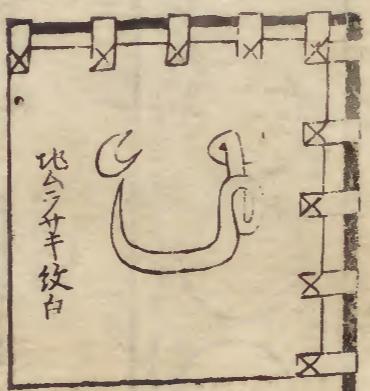 地ムラサキ紋白